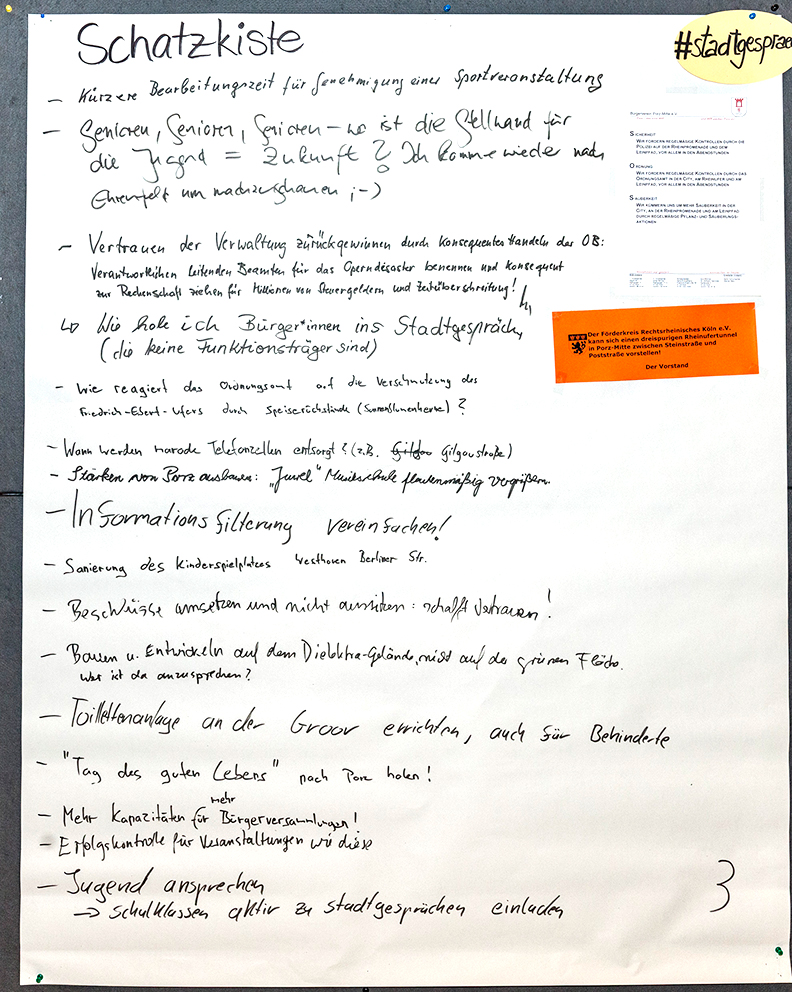 Schatzkiste
#stadtgesprae
- Kürzere Bearbeitungszeit für Genehmigung einer Sportveranstaltung
- Senioren, Senioren, Senioren - wo ist die Stellwand für
die Jugend = Zukunft? Ich komme wieder nach
Ehrenfeld um nachzuschauen ;-)
- Vertrauen der Verwaltung zurückgewinnen durch konsequentes Handeln der OB:
Verantwortlichen leitenden Beamten für das Operndesaster benennen und konsequent
zur Rechenschaft ziehen für Millionen von Steuergeldern und Zeitüberschreitung!
↳ Wie hole ich Bürger*innen ins Stadtgespräch,
(die keine Funktionsträger sind)
- Wie reagiert das Ordnungsamt auf die Verschmutzung des
Friedrich-Ebert-Ufers durch Speiserückstände (Sonnenblumenkerne)?
- Wann werden marode Telefonzellen entsorgt? (z.B. Gilgaustraße)
- Stärken von Porz ausbauen: "Juwel" Musikschule flächenmäßig vergrößern.
- Informationsfilterung vereinfachen!
- Sanierung des Kinderspielplatzes Westhoven Berliner Str.
- Beschlüsse umsetzen und nicht aussitzen: schafft Vertrauen!
- Bauen u. Entwickeln auf dem Dielektra-Gelände, nicht auf der grünen Fläche.
Wer ist da anzusprechen?
- Toilettenanlage an der Groov errichten, auch für Behinderte
- "Tag des guten Lebens" nach Porz holen!
- Mehr Kapazitäten für mehr Bürgerversammlungen!
- Erfolgskontrolle für Veranstaltungen wie diese
- Jugend ansprechen
→ Schulklassen aktiv zu Stadtgesprächen einladen
3
Bürgerverein Porz-Mitte e.V.
SICHERHEIT
WIR FORDERN REGELMÄSSIGE KONTROLLEN DURCH DIE
POLIZEI AUF DER RHEINPROMENADE UND DEM
LEINPFAD, VOR ALLEM IN DEN ABENDSTUNDEN
ORDNUNG
WIR FORDERN REGELMÄSSIGE KONTROLLEN DURCH DAS
ORDNUNGSAMT IN DER CITY, AM RHEINUFER UND AM
LEINPFAD, VOR ALLEM IN DEN ABENDSTUNDEN
SAUBERKEIT
WIR KÜMMERN UNS UM MEHR SAUBERKEIT IN DER
CITY, AN DER RHEINPROMENADE UND AM LEINPFAD
DURCH REGELMÄSSIGE PFLANZ- UND SÄUBERUNGS-
AKTIONEN
Der Förderkreis Rechtsrheinisches Köln e.V.
kann sich einen dreispurigen Rheinufertunnel
in Porz-Mitte zwischen Steinstraße und
Poststraße vorstellen!
Der Vorstand